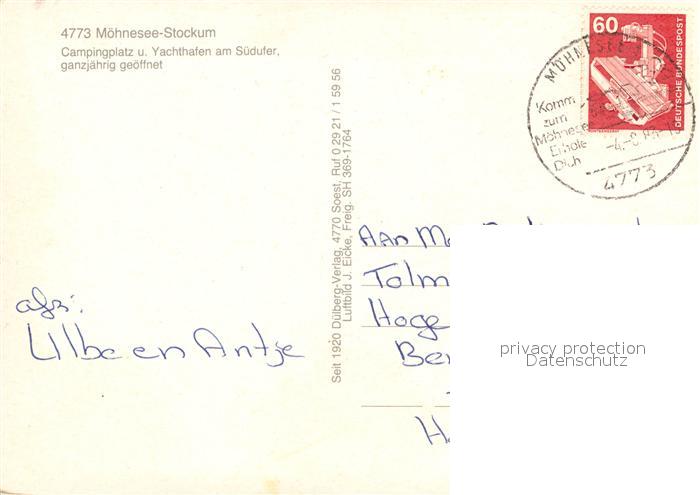 4773 Möhnesee-Stockum
Campingplatz u. Yachthafen am Südufer,
ganzjährig geöffnet
60
DEUTSCHE BUNDESPOST
MÖHNESEE
Komm
zum
Möhnesee
Erhole
Dich
4773
Seit 1920 Dülberg-Verlag, 4770 Soest, Ruf 0 29 21 / 1 59 56
Luftbild J. Eicke, Freig. SH 369-1764
afz:
Ulbe en Antje
Aan
Tolm
Hoge
Ber
privacy protection
Datenschutz